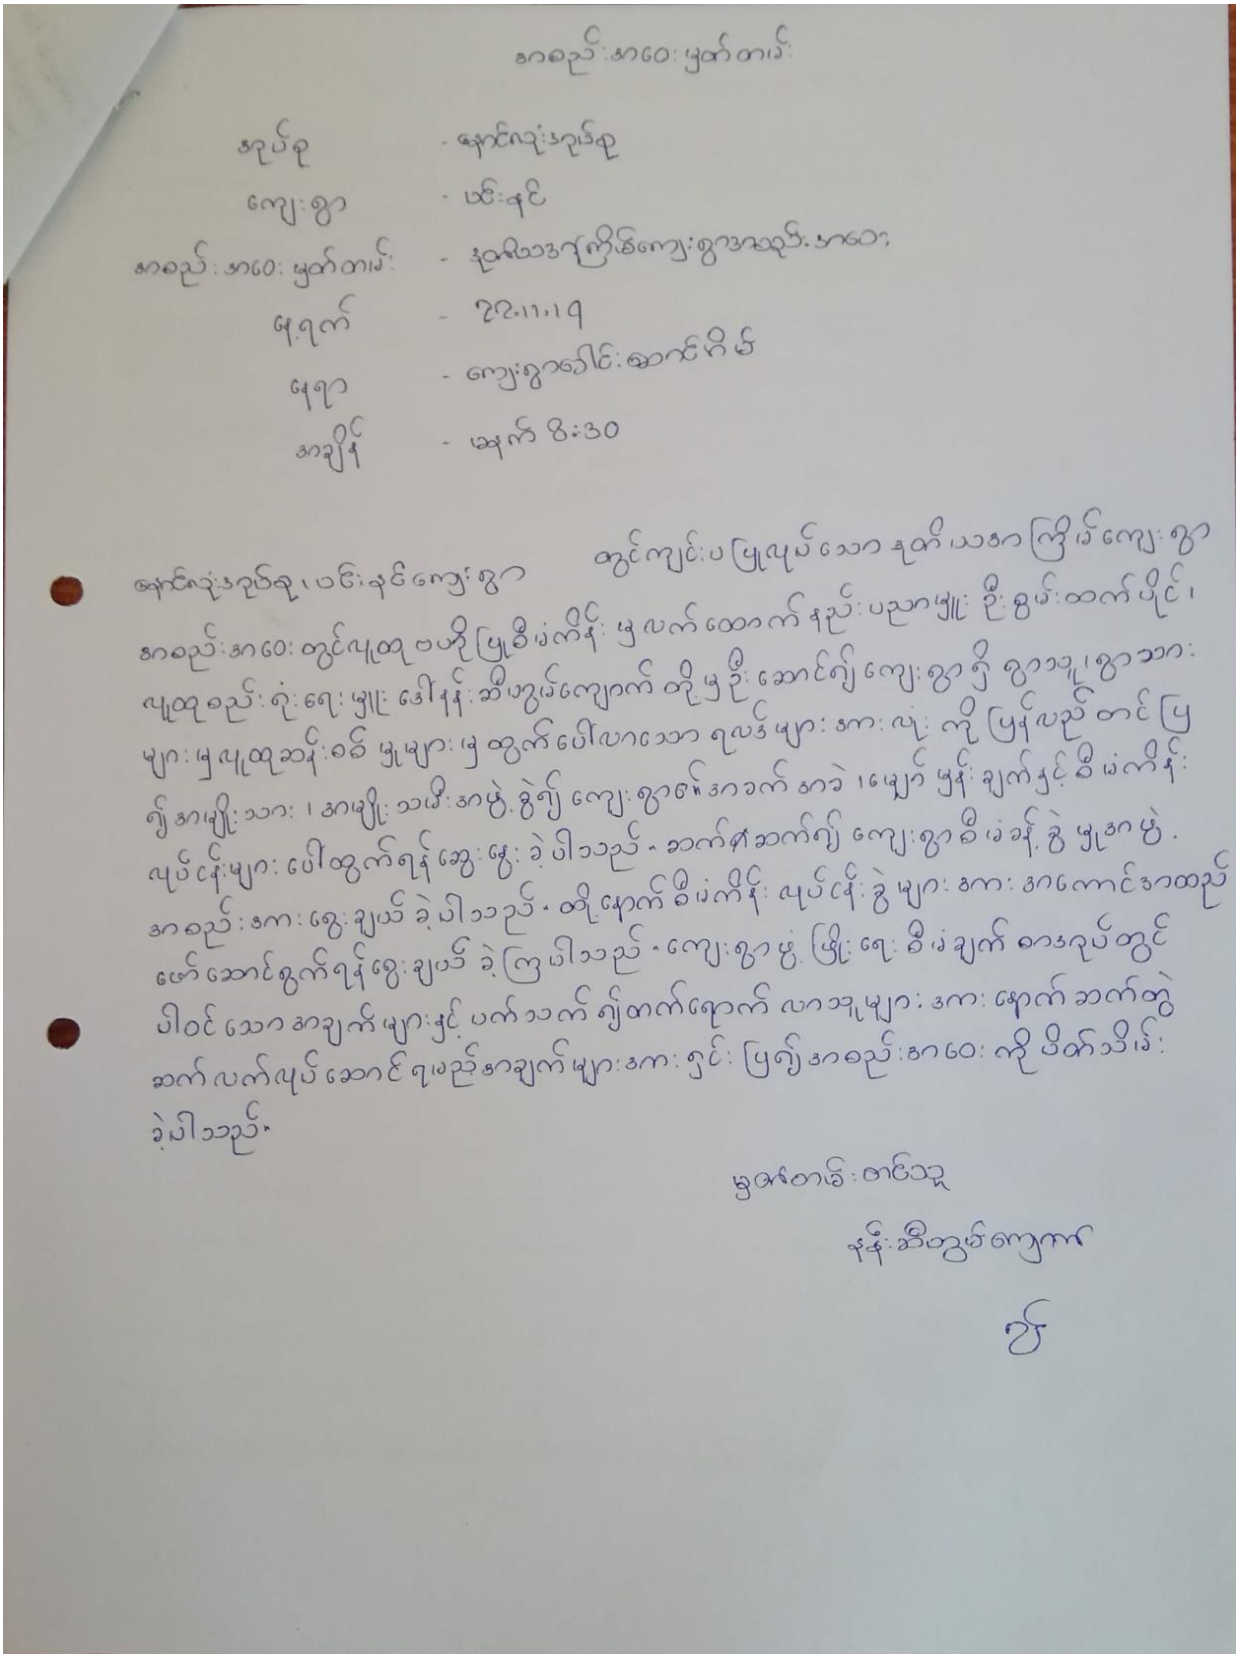 အစည်းအဝေးမှတ်တမ်း
အုပ်စု - နောင်လုံးအုပ်စု
ကျေးရွာ - ပင်းနင်
အစည်းအဝေးမှတ်တမ်း - ဒုတိယအကြိမ်ကျေးရွာအစည်းအဝေး
နေ့ရက် - 22.11.19
နေရာ - ကျေးရွာခေါင်းဆောင်အိမ်
အချိန် - မနက် 8:30
နောင်လုံးအုပ်စု၊ ပင်းနင်ကျေးရွာ တွင်ကျင်းပပြုလုပ်သောဒုတိယအကြိမ်ကျေးရွာ
အစည်းအဝေးတွင်လူထုဗဟိုပြုစီမံကိန်းမှလက်ထောက်နည်းပညာမှူး ဦးစွမ်းထက်ပိုင်၊
လူထုစည်းရုံးရေးမှူး ဒေါ်နန်းဆီဟွမ်ကျောက် တို့မှဦးဆောင်၍ကျေးရွာရှိ ရွာသူ၊ရွာသား
များမှလူထုဆန်းစစ်မှုများမှထွက်ပေါ်လာသောရလဒ်များအားလုံးကိုပြန်လည်တင်ပြ
၍အမျိုးသား၊ အမျိုးသမီးအဖွဲ့ခွဲ၍ကျေးရွာ၏အခက်အခဲ၊မျှော်မှန်းချက်နှင့်စီမံကိန်း
လုပ်ငန်းများပေါ်ထွက်ရန်ဆွေးနွေးခဲ့ပါသည်။ ဆက်ဆက်၍ကျေးရွာစီမံခန့်ခွဲမှုအဖွဲ့
အစည်းအားရွေးချယ်ခဲ့ပါသည်။ ထို့နောက်စီမံကိန်းလုပ်ငန်းခွဲများအားအကောင်အထည်
ဖော်ဆောင်ရွက်ရန်ရွေးချယ်ခဲ့ကြပါသည်။ ကျေးရွာဖွံ့ဖြိုးရေးစီမံချက်စာအုပ်တွင်
ပါဝင်သောအချက်များနှင့်ပက်သက်၍တက်ရောက်လာသူများအားနောက်ဆက်တွဲ
ဆက်လက်လုပ်ဆောင်ရမည့်အချက်များအားရှင်းပြ၍အစည်းအဝေးကိုပိတ်သိမ်း
ခဲ့ပါသည်။
မှတ်တမ်းတင်သူ
နန်းဆီဟွမ်ကျောက်